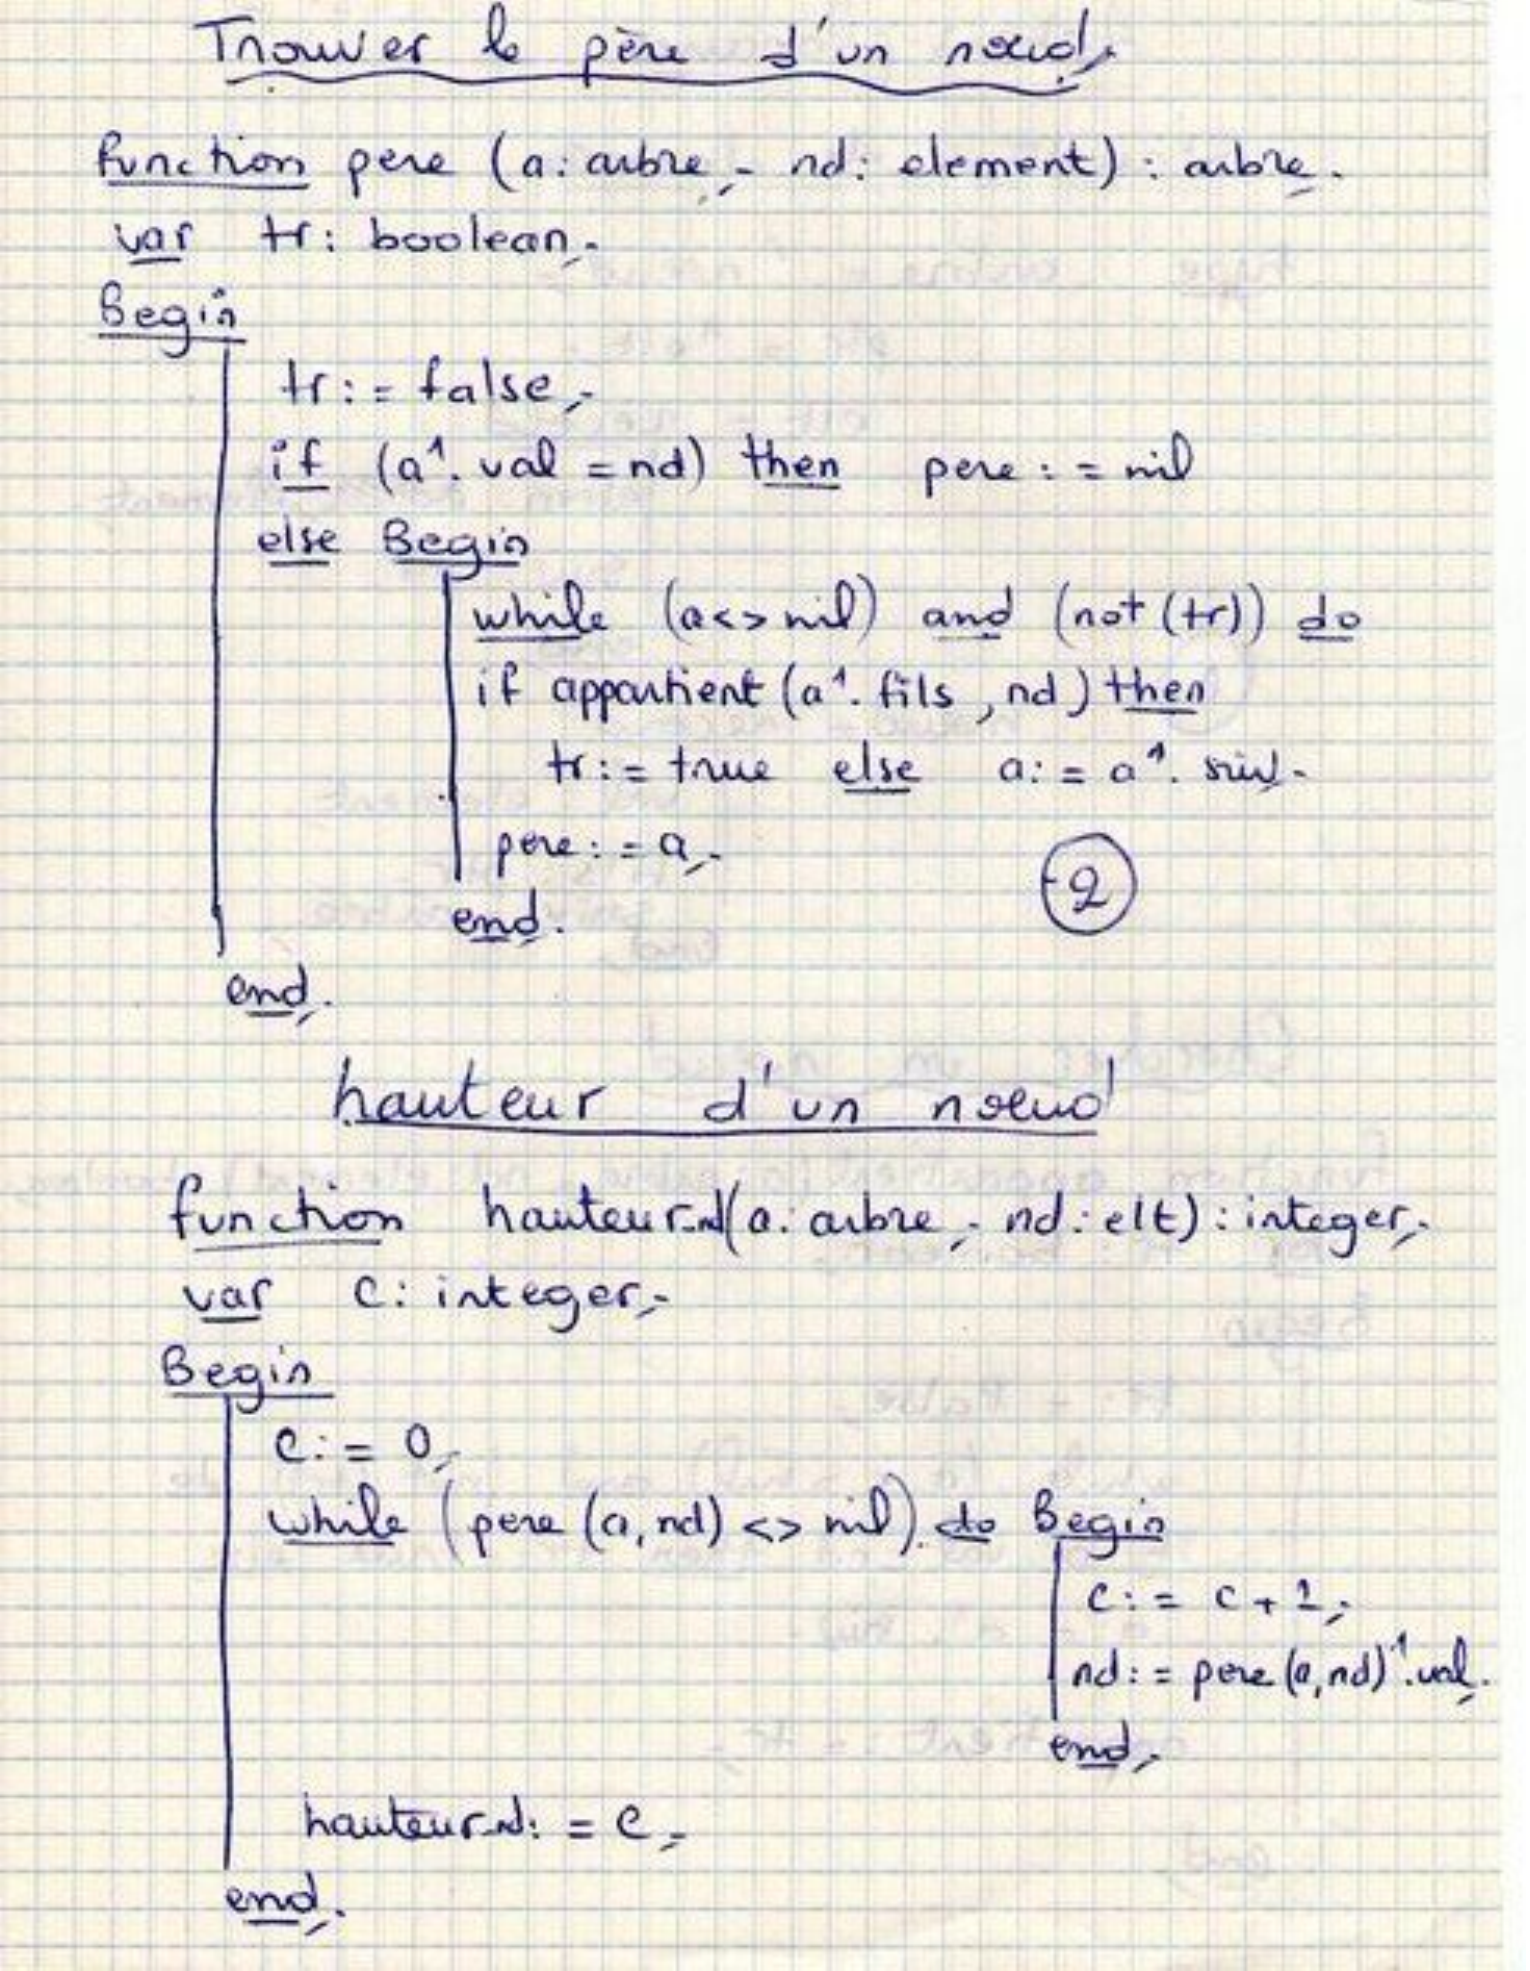 Trouver le père d'un noeud
function pere (a: arbre; nd: element) : arbre;
var tr: boolean;
Begin
tr := false;
if (a↑. val = nd) then pere := nil
else Begin
while (a<>nil) and (not (tr)) do
if appartient (a↑. fils, nd) then
tr := true else a := a↑. suiv.
pere := a;
end.
2
end;
hauteur d'un noeud
function hauteur_nd(a: arbre; nd: elt) : integer;
var c: integer;
Begin
c := 0;
while (pere (a, nd) <> nil) do Begin
c := c + 1;
nd := pere (a, nd)↑. val;
end;
hauteur_nd := c;
end;